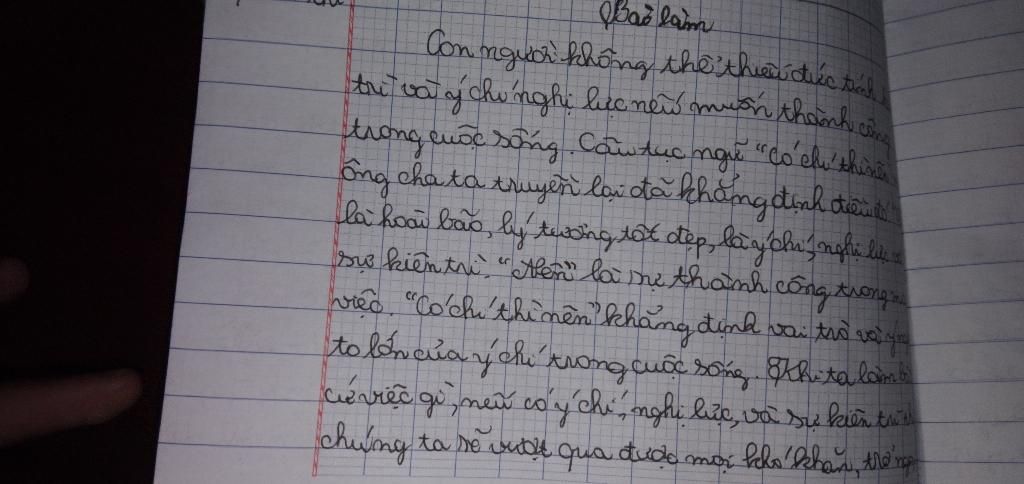 Bài làm
Con người không thể thiếu đức tính
trì và ý chí nghị lực nếu muốn thành công
trong cuộc sống. Câu tục ngữ "Có chí thì nên"
ông cha ta truyền lại đã khẳng định điều đó
là hoài bão, lý tưởng tốt đẹp, là ý chí, nghị lực,
sự kiên trì. "Nên" là sự thành công trong
việc. "Có chí thì nên" khẳng định vai trò và
to lớn của ý chí trong cuộc sống. Khi ta làm
cứ việc gì, nếu có ý chí, nghị lực, và sự kiên trì
chúng ta sẽ vượt qua được mọi khó khăn, trở